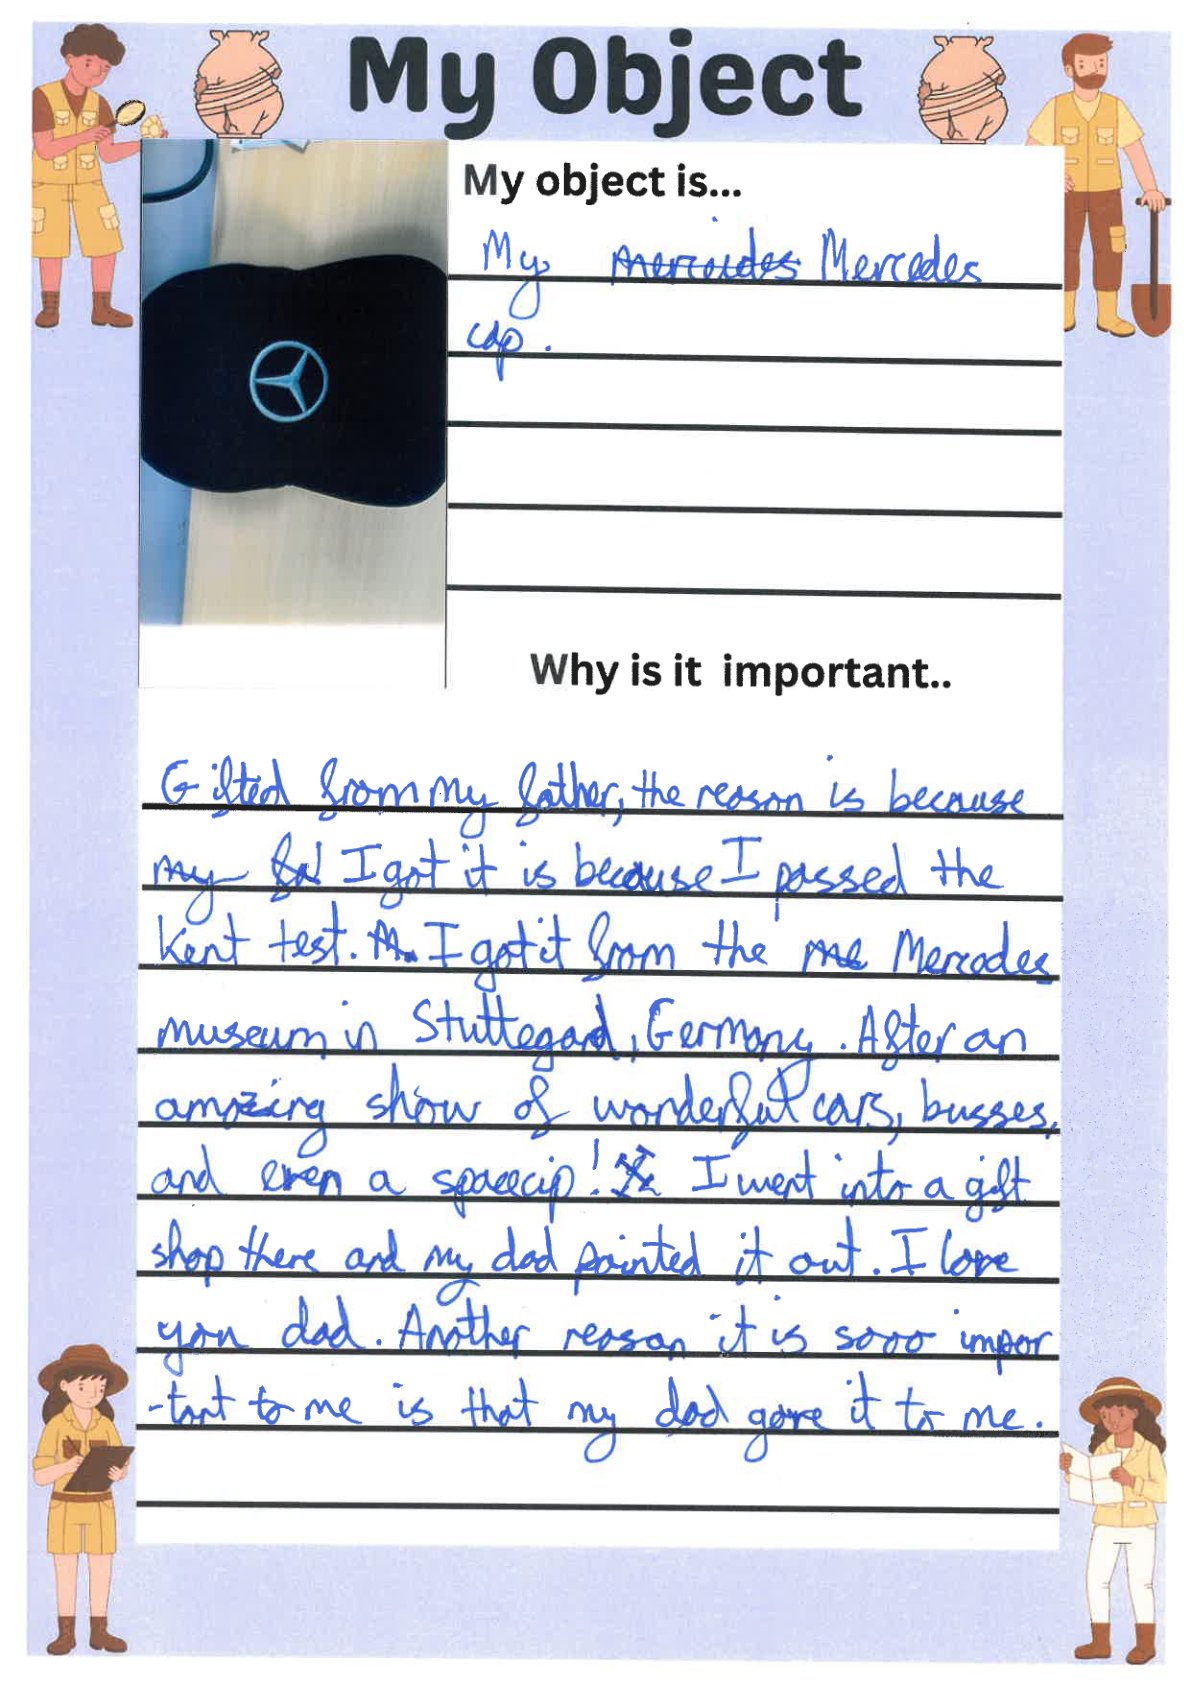 My Object
My object is...
My mercides Mercedes
cap.
Why is it important..
Gifted from my father, the reason is because
my fa I got it is because I passed the
Kent test. I got it from the me Mercedes
museum in Stuttegard, Germany. After an
amazing show of wonderful cars, busses,
and even a spacecip! I went into a gift
shop there and my dad pointed it out. I love
you dad. Another reason it is sooo impor
-tant to me is that my dad gave it to me.